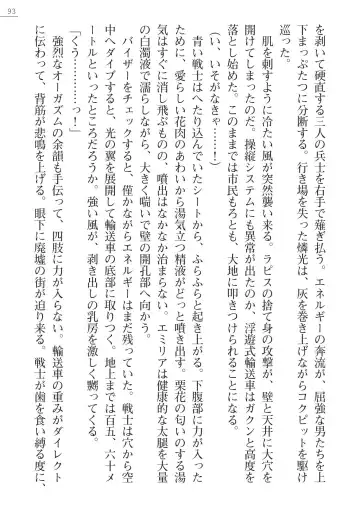 93
を剥いて硬直する三人の兵士を右手で薙ぎ払う。エネルギーの奔流が、屈強な男たちを上
下まっぷたつに分断する。行き場を失った燐光は、灰を巻き上げながらコクピットを駆け
巡った。
肌を刺すように冷たい風が突然襲い来る。ラピスの捨て身の攻撃が、壁と天井に大穴を
開けてしまったのだ。操縦システムにも異常が出たのか、浮遊式輸送車はガクンと高度を
落とし始めた。このままでは市民もろとも、大地に叩きつけられることになる。
(い、いそがなきゃ……！)
青い戦士はへたり込んでいたシートから、ふらふらと起き上がる。下腹部に力が入った
ために、愛らしい花肉のあわいから湯気立つ精液がどっと噴き出す。栗花の匂いのする湯
の白濁液で濡らしながら、大きく喘いで壁の開孔部へ向かう。
だまりができても、噴出はなかなか治まらない。エミリアは健康的な太腿を大量
バイザーをチェックすると、僅かながらエネルギーはまだ残っていた。戦士は穴から空
中へダイブすると、光の翼を展開して輸送車の底部に取りつく。地上までは百五、六十メ
ートルといったところだろうか。強い風が、剥き出しの乳房を激しく嬲ってくる。
「くう…………っ！」
強烈なオーガズムの余韻も手伝って、四肢に力が入らない。輸送車の重みがダイレクト
に伝わって、背筋が悲鳴を上げる。眼下に廃墟の街が迫り来る。戦士が歯を食い縛る度に、